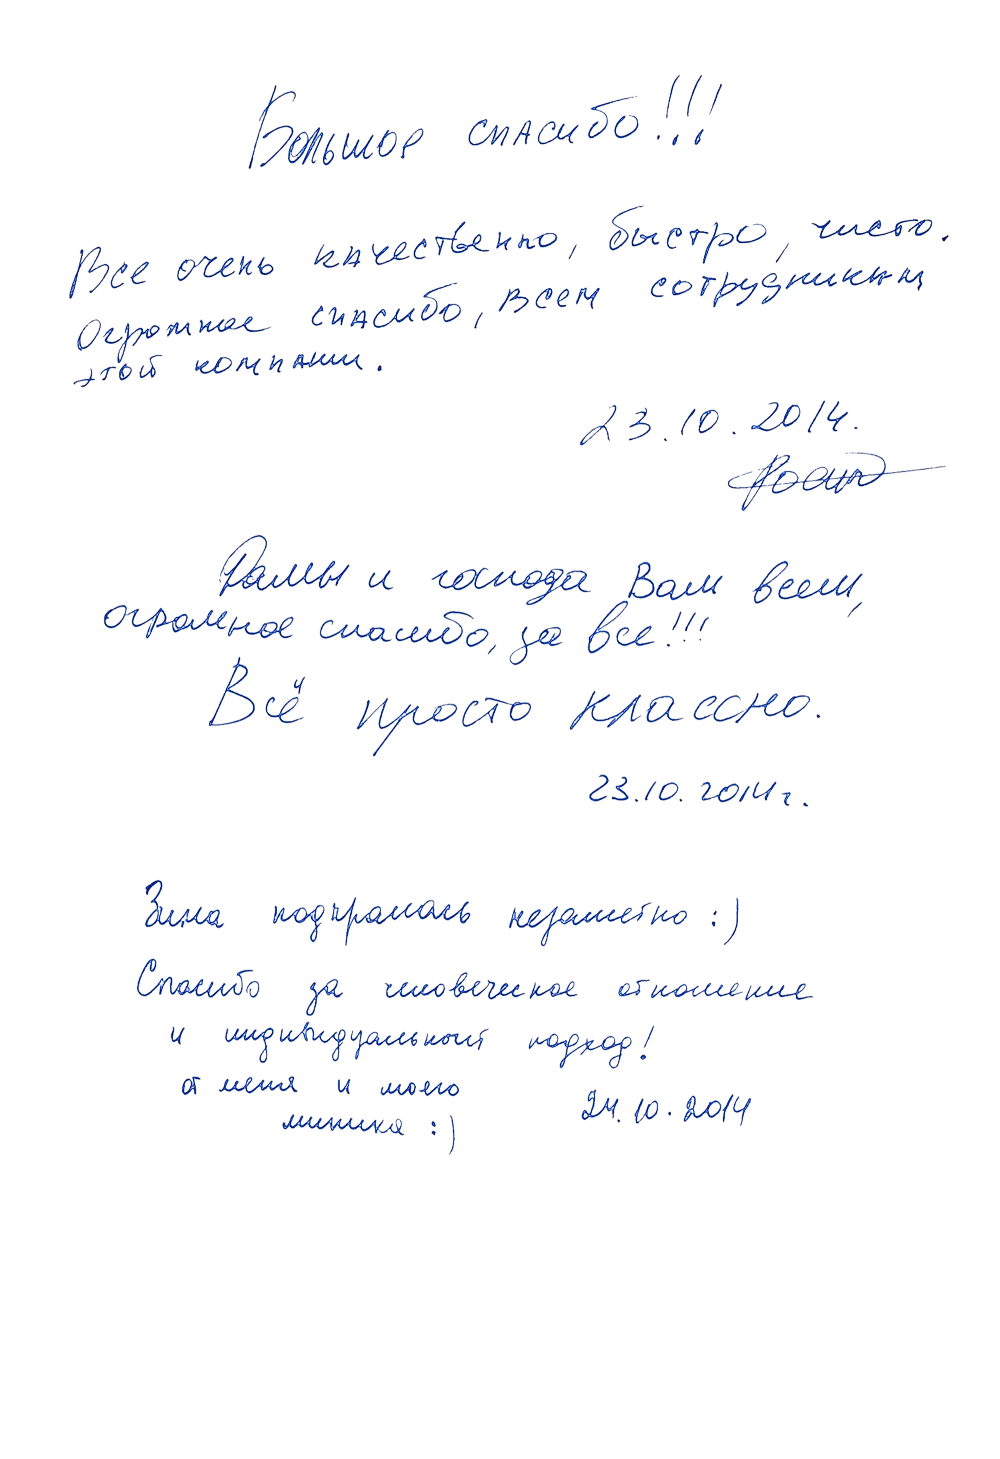 Большое спасибо!!!
Все очень качественно, быстро, чисто.
Огромное спасибо, всем сотрудникам
этой компании.
23.10.2014.
Дамы и господа Вам всем,
огромное спасибо, за все!!!
Всё просто классно.
23.10.2014г.
Зима подкралась незаметно :)
Спасибо за человеческое отношение
и индивидуальный подход!
от меня и моего
миника :)
24.10.2014